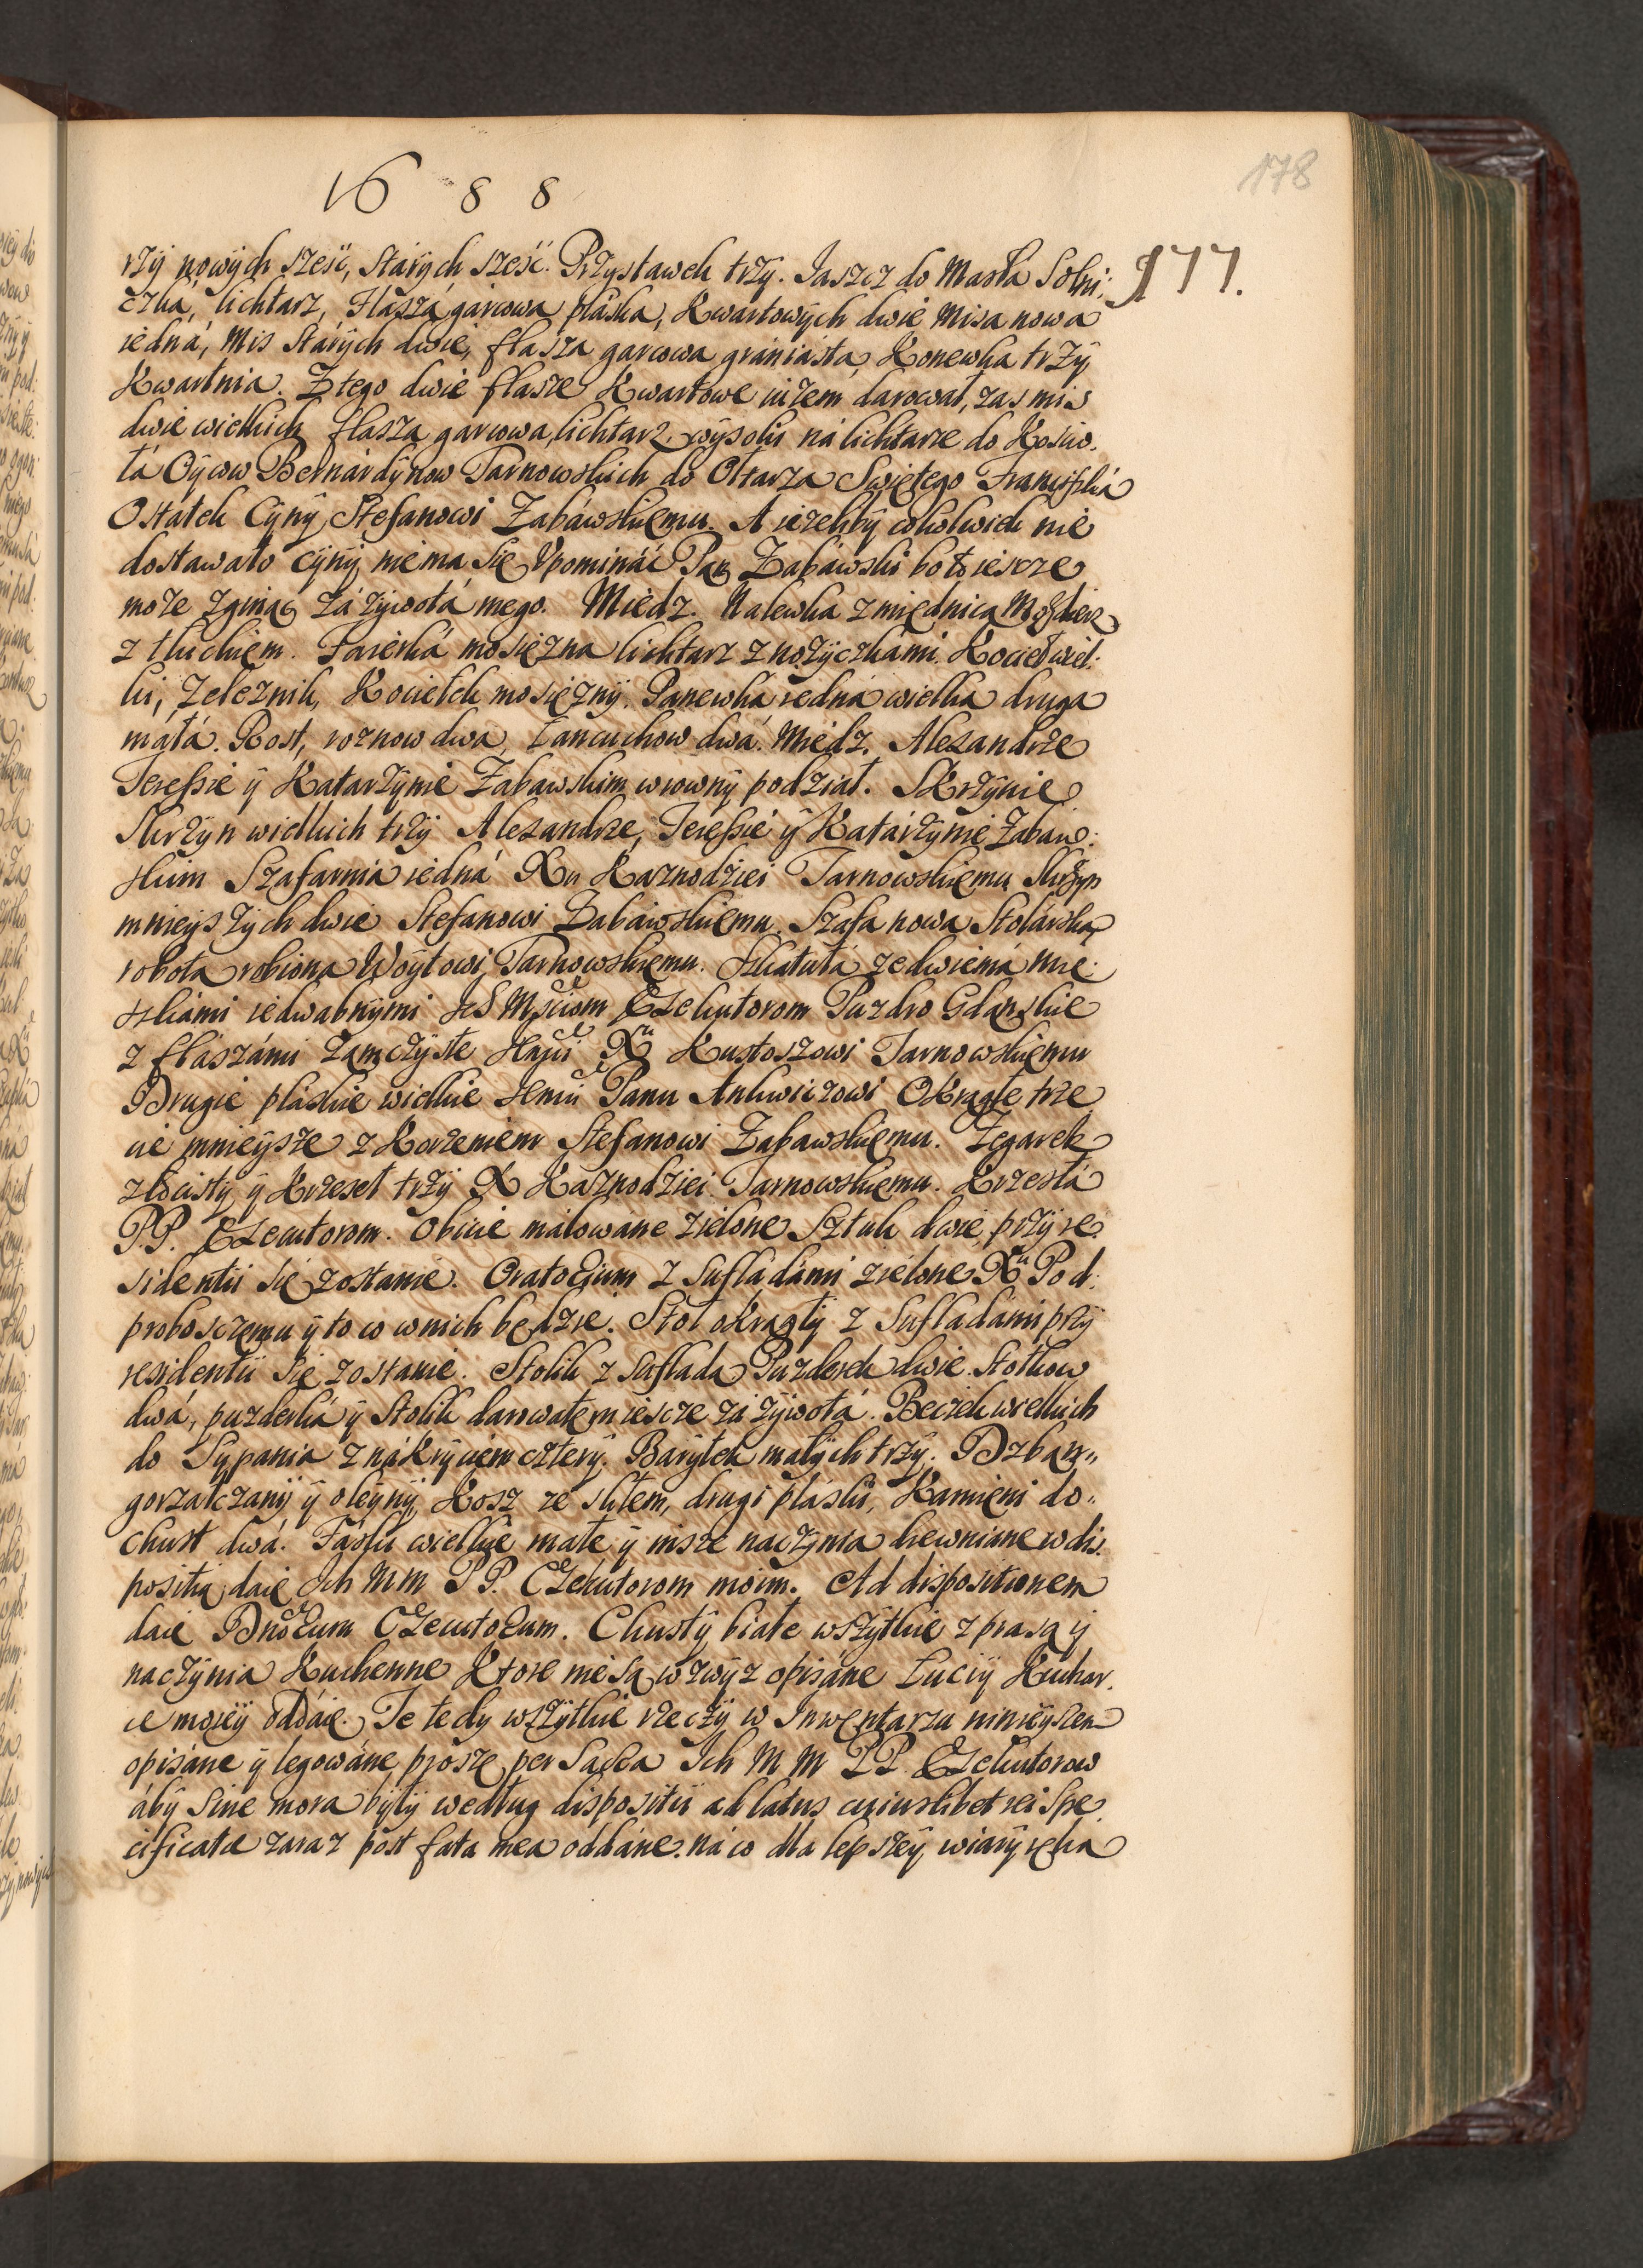 1688
178
177.
rzÿ nowÿch sześć, stárÿch sześć. Przystawek trzÿ. Jaszcz do Masłá Solni:
czka, lichtarz, Flaszá garcowa płáska, Kwartowÿch dwie Misa nowa
iedná, Mis stárÿch dwie, flasza garcowa grániásta, Konewka trzÿ
Kwartnia. Z tego dwie flasze Kwartowe iużem darował, zas mis
dwie wielkich flasza garcowa, lichtarz wÿsoki ná lichtarze do Kościo.
łá Oÿcow Bernárdÿnow Tarnowskich do Ołtarza Swiętego Franciszká
Ostátek Cÿnÿ Stefanowi Zabáwskiemu. A ieżeliby cokolwiek nie
dostawało cÿnÿ nie ma się Vpomináć Pan Zabáwski bo to iescze
może zginąć zá żÿwotá mego. Miedz. Nalewka z miednicą Mozdzierz
z tłuckiem. Faierká mosiężna lichtarz z nożÿczkámi. Kocieł wiel:
ki, Zeleznik, Kociełek mosiężnÿ. Panewká iedná wielka druga
máłá. Rost, rożnow dwa, Łancuchow dwá. Miedz. Alexandrze
Teressie ÿ Katarzÿnie Zabawskim wrownÿ podział. Skrzÿnie
Skrzÿn wielkich trzÿ Alexandrze, Teressie ÿ Katárzÿnie Zabaw:
skim Szafarnia iedná Xu Kaznodziei Tarnowskiemu Skrzÿn
mnieyszÿch dwie Stefanowi Zabáwskiemu. Szafa nowa Stolárską
robotą robiona Woÿtowi Tarnowskiemu. Szkatułá ze dwiemá mie:
szkámi iedwabnÿmi Ich Mściom Exekutorom Puzdro Gdanskie
z flászámi zamczÿste Xu Kustoszowi Tarnowskiemu
Drugie płáskie wielkie Panu Ankwiczowi Okrągłe trze
cie mnieÿsze z Korzeniem Stefanowi Zabawskiemu. Zegarek
złocistÿ ÿ Krzeseł trzÿ X Kaznodziei Tarnowskiemu. Krzesłá
PP. Executorom. Obicie málowáne zielone Sztuk dwie, przÿ re
sidentii się zostanie. Oratorium z Suflądámi zielone Xu Pod:
proboszczemu ÿ to co w nich będzie. Stoł okrągłÿ z Suflądámi przÿ
residentii się zostanie. Stolik z suflada Puzderek dwie. Stołkow
dwá, puzderká ÿ Stolik darowałem iescze zá żÿwotá. Beczek wielkich
do Sypania z nákrÿciem czterÿ. Barÿłek małÿch trzÿ. Dzban
gorzałczanÿ ÿ oleÿnÿ, Kosz ze słem, drugi płáski, Kamieni do
chust dwá. Fáski wielkie małe ÿ insze naczÿnia drewniane w dis
positią daię Ich Mm PP. Exekutorom moim. Ad dispositionem
daię Dnorum Executorum. Chustÿ białe wszÿtkie z prasą ÿ
naczÿnia Kuchenne Ktore nie są w zwÿż opisáne Łuciÿ Kuchar.
ce moieÿ oddáię. Te tedÿ wszÿtkie rzeczÿ w Inwentarzu ninieÿszem
opisáne ÿ legowáne proszę per Sacra Ich M M PP. Exekutorow
ábÿ sine mora bÿłÿ według dispositiÿ ad latus cuiuslibet rei spe
cificatae zaraz post fata mea oddáne. ná co dla lepszeÿ wiarÿ ręką